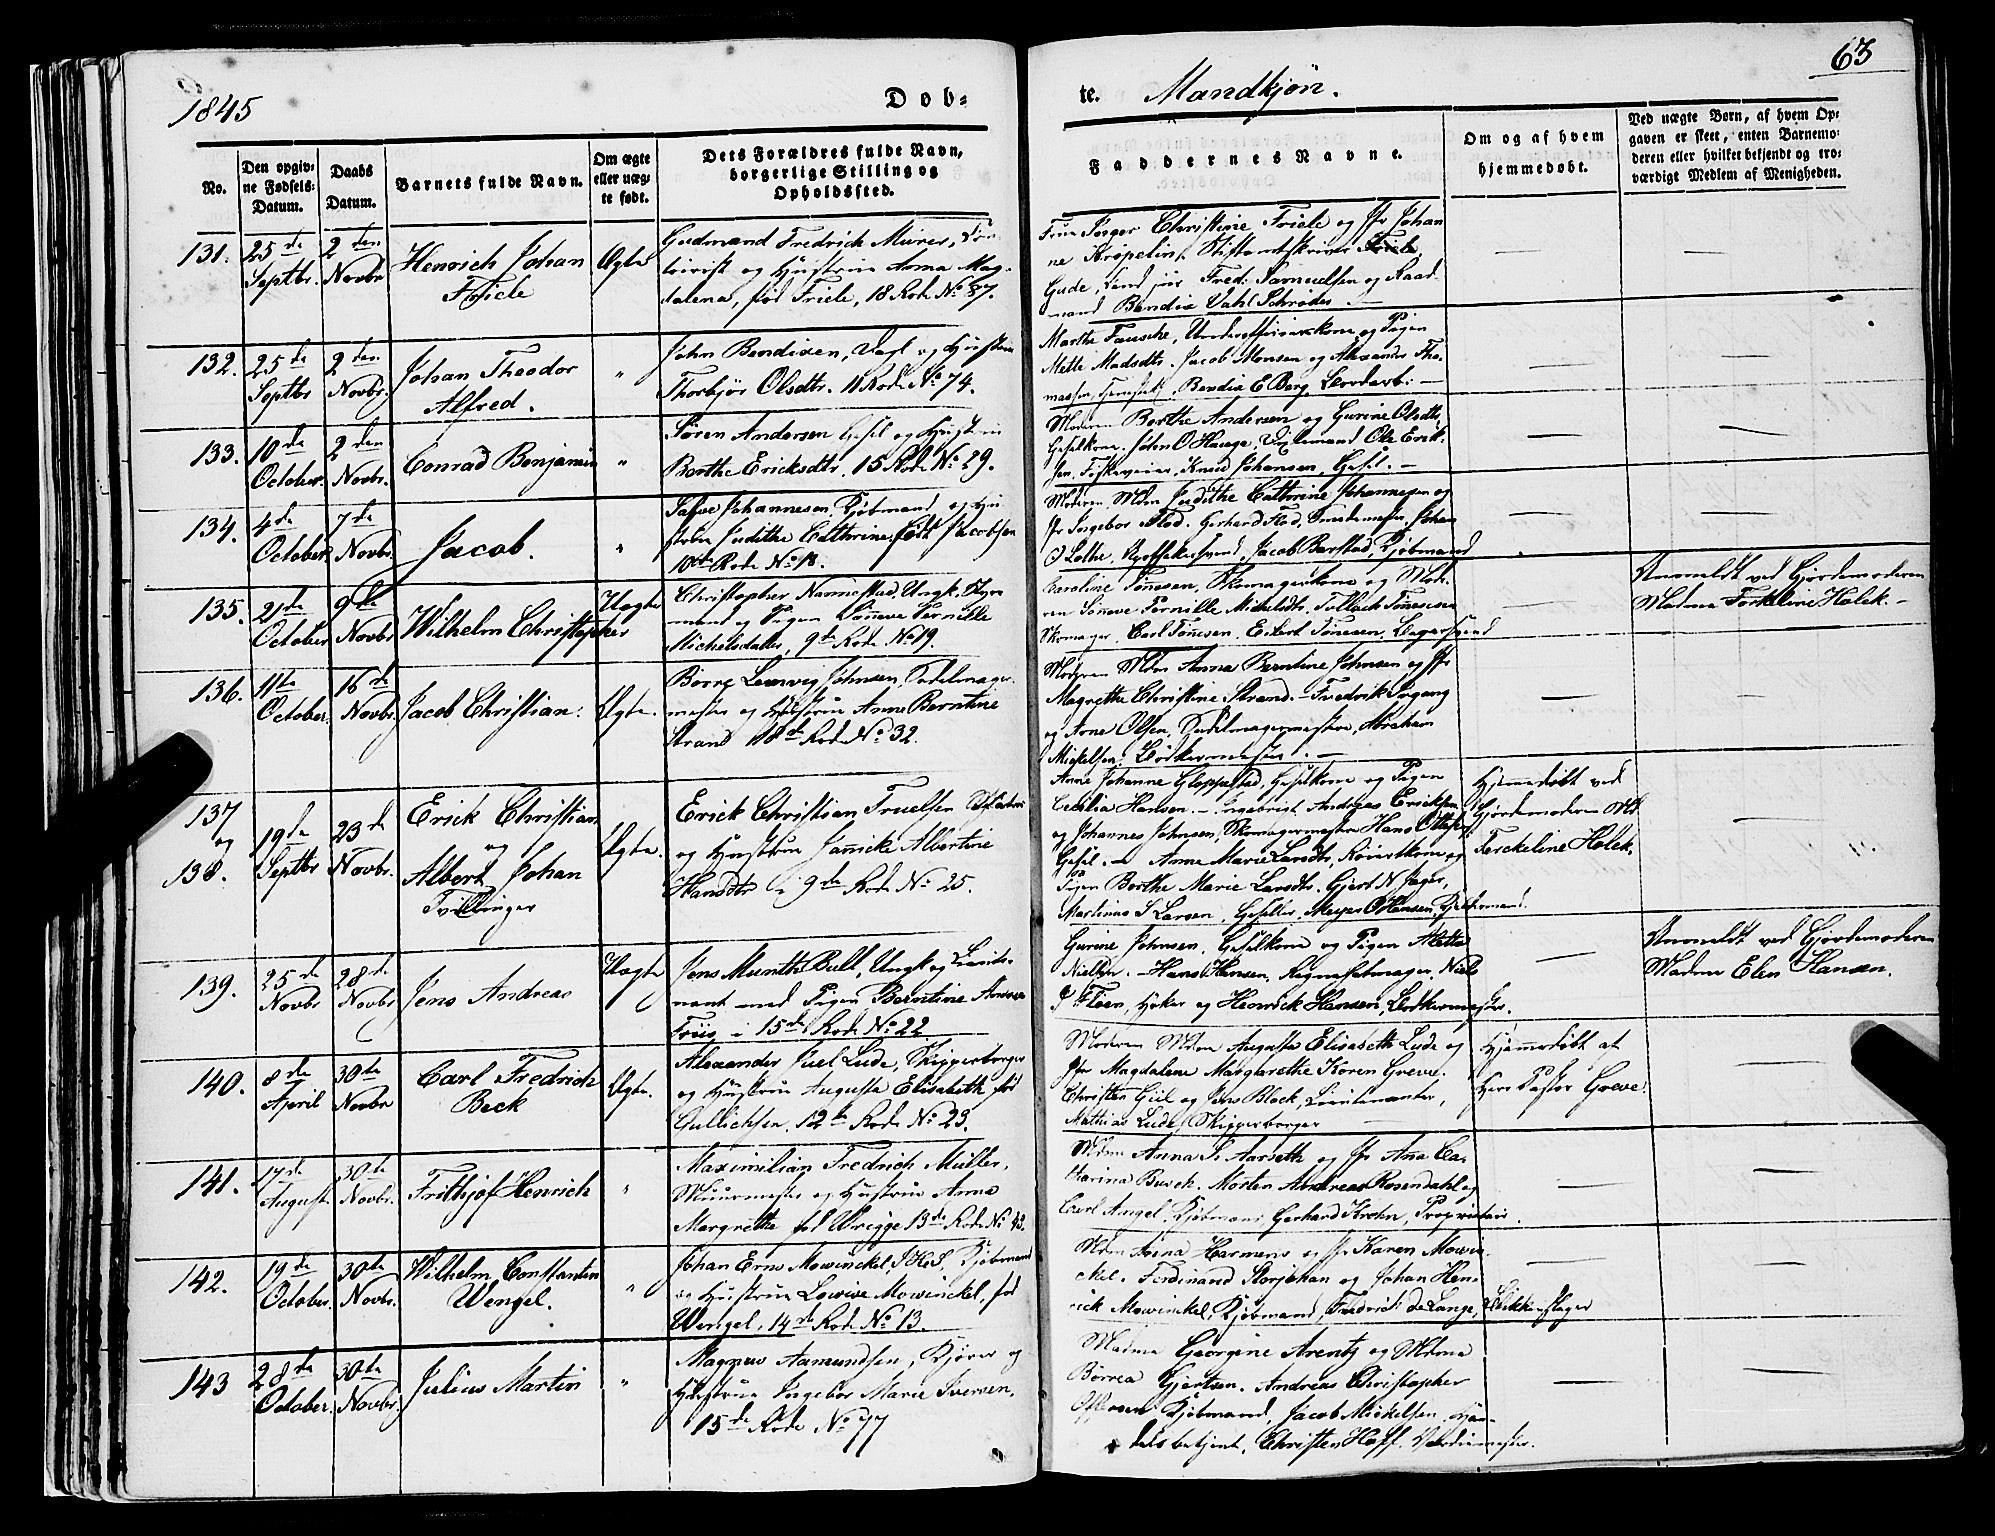 1845
Dob-
te. Mandkjön.
63
No.
Den opgiv-
ne Fødsels-
Datum.
Daabs
Datum.
Barnets fulde Navn.
Om ægte
eller uæg-
te født.
Dets Forældres fulde Navn,
borgerlige Stilling og
Opholdssted.
Faddernes Navne.
Om og af hvem
hjemmedøbt.
Ved uægte Børn, af hvem Op-
gaven er skeet, enten Barnemo-
deren eller hvilket bekjendt og tro-
værdigt Medlem af Menigheden.
131.
25de
Septbr.
2den
Novbr
Henrich Johan
Friele
Ægte
Gudmand Fredrich Meirer,
og Hustrue Anna Mag-
dalena, fød Friele, 18 Rode No 87.
Christine Friele og Jfr Johan
ne Kröpelin, Stiftamtskriver Friele
Gude, Fred: Samuelsen og Raad
mand Bendix Vahl Schröder. —
—
—
132.
25de
Septbr
2den
Novbr.
Johan Theodor
Alfred.
"
John Bendixen, Vagt og Hustrue
Thorbjör Olsdtr. 11 Rode No 74.
Marthe Fausche, og Pigen
Mette Madsdtr. Jacob Monsen og Alexander Tho-
massen, Bendix E Berg, —
—
—
133.
10de
October.
2den
Novbr.
Conrad Benjamin
"
Sören Andersen Gesel og Hustrue
Berthe Ericksdtr. 15 Rode No 29.
Moderen Berthe Andersen og Gurine Olsdtr,
Geselkone. John O Hauge, Ole Erik-
sen, Knud Johansen, Gesel. —
—
—
134.
4de
October
7de
Novbr.
Jacob.
"
Johannesen, Kjöbmand og Hu
strue Judithe Cathrine født Jacobsen
10de Rode No 18.
Moderen Mdm Judithe Cathrine Johannesen og
Jfr Ingebor Flod. Gerhard Flod, Johan
J Lothe, Jacob Barstad, Kjöbmand
—
—
135.
21de
October
9de
Novbr
Wilhelm Christopher
Uægte
Christopher Nannestad, Ungk.
og Pigen Sönneve Pernille
Michelsdatter, 9de Rode No 19.
Caroline Tönesen, Skomagerkone og Mod-
ren Sönneve Pernille Michelsdtr. Tollach Tönesen
Skomager, Carl Tönesen. Eilert Tönesen,
—
Anmeldt ved Gjordemoderen
Madme Torkeline Holck. —
136.
11te
October.
16de
Novbr.
Jacob Christian.
Ægte.
Börre Johnsen, Sadelmager
mester og Hustrue Anne Berntine
Strand 18de Rode No 32.
Moderen Mdm Anna Berntine Johnsen og Jfr
Magrethe Christine Strand. — Fredrik
og Arne Olsen, Sadelmagermestere, Abraham
Mickelsen, Bödkermester. —
—
—
137
og
138.
19de
Septbr
23de
Novbr.
Erick Christian
og
Albert Johan
Tvillinger
Ægte.
Erick Christian Truelsen
og Hustrue Jannicke Albertine
Hansdtr i 9de Rode No 25.
Anne Johanne Gloppestad, Geselkone og Pigen
Cecilia Hansen. — Ingebrigt Andreas Ericksen
og Johannes Johnsen, Skomagermestere Hans Ottesen
Gesel. — Anne Marie Larsdtr, og
Pigen Berthe Marie Larsdtr. Gjert N Jager,
Martinus S Larsen, Geseller, Meyer O Hansen, Kjöbmand.
Hjemmedöbt ved
Gjordemoderen Md
Torckeline Holck.
—
139.
25de
Novbr
28de
Novbr
Jens Andreas
Uægte
Jens Munthe Bull, Ungk og Lieute-
nant med Pigen Berntine Annine
Friis i 15de Rode No 22
Gurine Johnsen, Geselkone og Pigen Alette
Nielsen. — Hans Hansen, Regnskabmager, Niels
J Fleen, Höker og Henrick Hansen, Bödkermester.
—
Anmeldt ved Gjordemoderen
Madme Elen Hansen.
140.
8de
April
30te
Novbr
Carl Fredrich
Beck
Ægte.
Alexander Juel Lude, Skipperborger
og Hustrue Augusta Elisabeth fød
Gullichsen, 12te Rode No 23.
Moderen Mdme Augusta Elisabeth Lude og
Jfr Magdalene Margarethe Koren Greve.
Christen Giil og Jens Block, Lieutenanter,
Mathias Lude, Skipperborger
Hjemmedöbt af
Herr Pastor Greve.
—
141.
17de
August.
30te
Novbr.
Frithjof Henrich
"
Maximilian Fredrich Müller,
Muurmester og Hustrue Anna
Margrethe fød Wrigge 13de Rode No 43.
Mdm Anna S. Aarseth og Jfr Ana Ca-
tharina Busck. Morten Andreas Rosendahl og
Carl Angel, Kjöbmænd Gerhard Krohn, Proprietair.
—
—
142.
19de
October.
30te
Novbr.
Wilhelm Constantin
Wengel.
"
Johan Ernst Mowinckel, J.H.S, Kjöbmand
og Hustrue Lovise Mowinckel, fød
Wengel, 14de Rode No 13.
Mdm Anna Harmens og Jfr Karen Mowin-
ckel. Ferdinand Storjohan og Johan Hen-
rick Mowinckel, Kjöbmænd, Fredrick de Lange, Blikkenslager
—
—
143
28de
October.
30te
Novbr.
Julius Martin
"
Magnus Aamundsen, Kjörer og
Hustrue Ingebor Marie Iversen,
15de Rode No 77
Madme Georgine Arentz og Mdme
Börrea Gjertsen. Andreas Christopher
Kjöbmand, Jacob Mickelsen, Han-
delsbetjent, Christen Hoff.
—
—